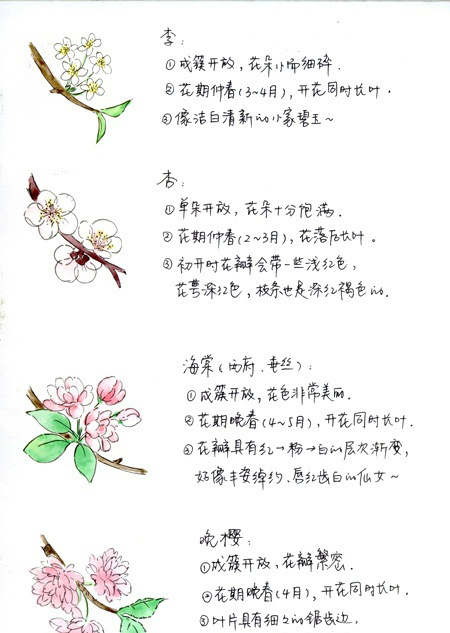 李：
①成簇开放，花朵小而细碎．
②花期仲春(3~4月)，开花同时长叶．
③像洁白清新的小家碧玉~
杏：
①单朵开放，花朵十分饱满．
②花期仲春(2~3月)，花落后长叶。
③初开时花瓣会带一些浅红色，
花萼深红色，枝条也是深红褐色的．
海棠(西府、垂丝)：
①成簇开放，花色非常美丽．
②花期晚春(4~5月)，开花同时长叶．
③花瓣具有红→粉→白的层次渐变，
好像丰姿绰约、唇红齿白的仙女~
晚樱：
①成簇开放，花瓣繁密．
②花期晚春(4月)，开花同时长叶．
③叶片具有细细的锯齿边．